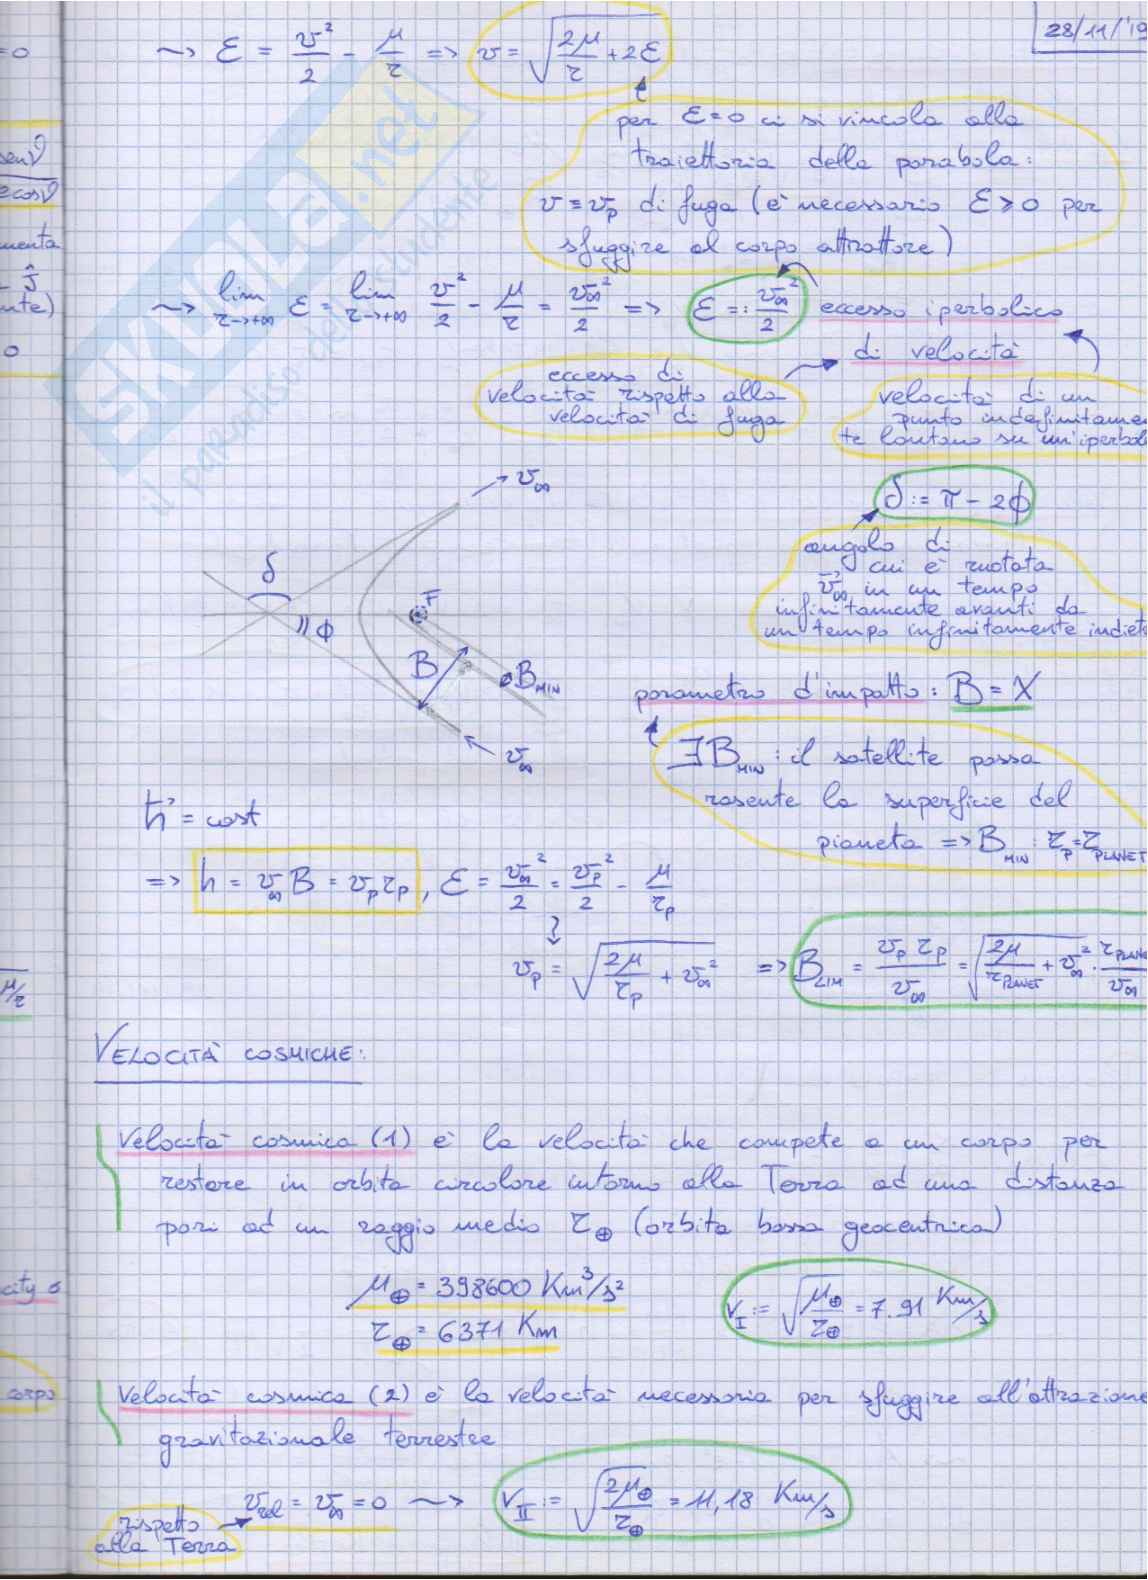 28/11/'19
~> ε = v²/2 - μ/r => v = √(2μ/r + 2ε)
per ε=0 ci si vincola alla
traiettoria della parabola:
v = v_p di fuga (è necessario ε>0 per
sfuggire al corpo attrattore)
~> lim r->+∞ ε = lim r->+∞ v²/2 - μ/r = v∞²/2 => ε =: v∞²/2 eccesso iperbolico
di velocità
eccesso di
velocità rispetto alla
velocità di fuga
velocità di un
punto indefinitamen
te lontano su un'iperbol
v∞
δ := π - 2ϕ
angolo di
cui è ruotata
v∞ in un tempo
infinitamente avanti da
un tempo infinitamente indiet
δ
F
ϕ
B
B MIN
v∞
parametro d'impatto: B = X
∃ B MIN : il satellite passa
rasente la superficie del
pianeta => B MIN : r_p = r PLANET
h = cost
=> h = v∞ B = v_p r_p , ε = v∞²/2 = v_p²/2 - μ/r_p
v_p = √(2μ/r_p + v∞²) => B LIM = v_p r_p / v∞ = √(2μ/r PLANET + v∞²) · r PLANE / v∞
VELOCITÀ COSMICHE:
Velocità cosmica (1) è la velocità che compete a un corpo per
restare in orbita circolare intorno alla Terra ad una distanza
pari ad un raggio medio r⊕ (orbita bassa geocentrica)
μ⊕ = 398600 Km³/s²
r⊕ = 6371 Km
V_I := √(μ⊕/r⊕) = 7.91 Km/s
Velocità cosmica (2) è la velocità necessaria per sfuggire all'attrazione
gravitazionale terrestre
v_rel = v∞ = 0 ~> V_II := √(2μ⊕/r⊕) = 11,18 Km/s
rispetto
alla Terra
=0
senϑ
ecosϑ
menta
ĵ
nte)
0
μ/r
city
corpo
SKUOLA.net
il paradiso dello studente